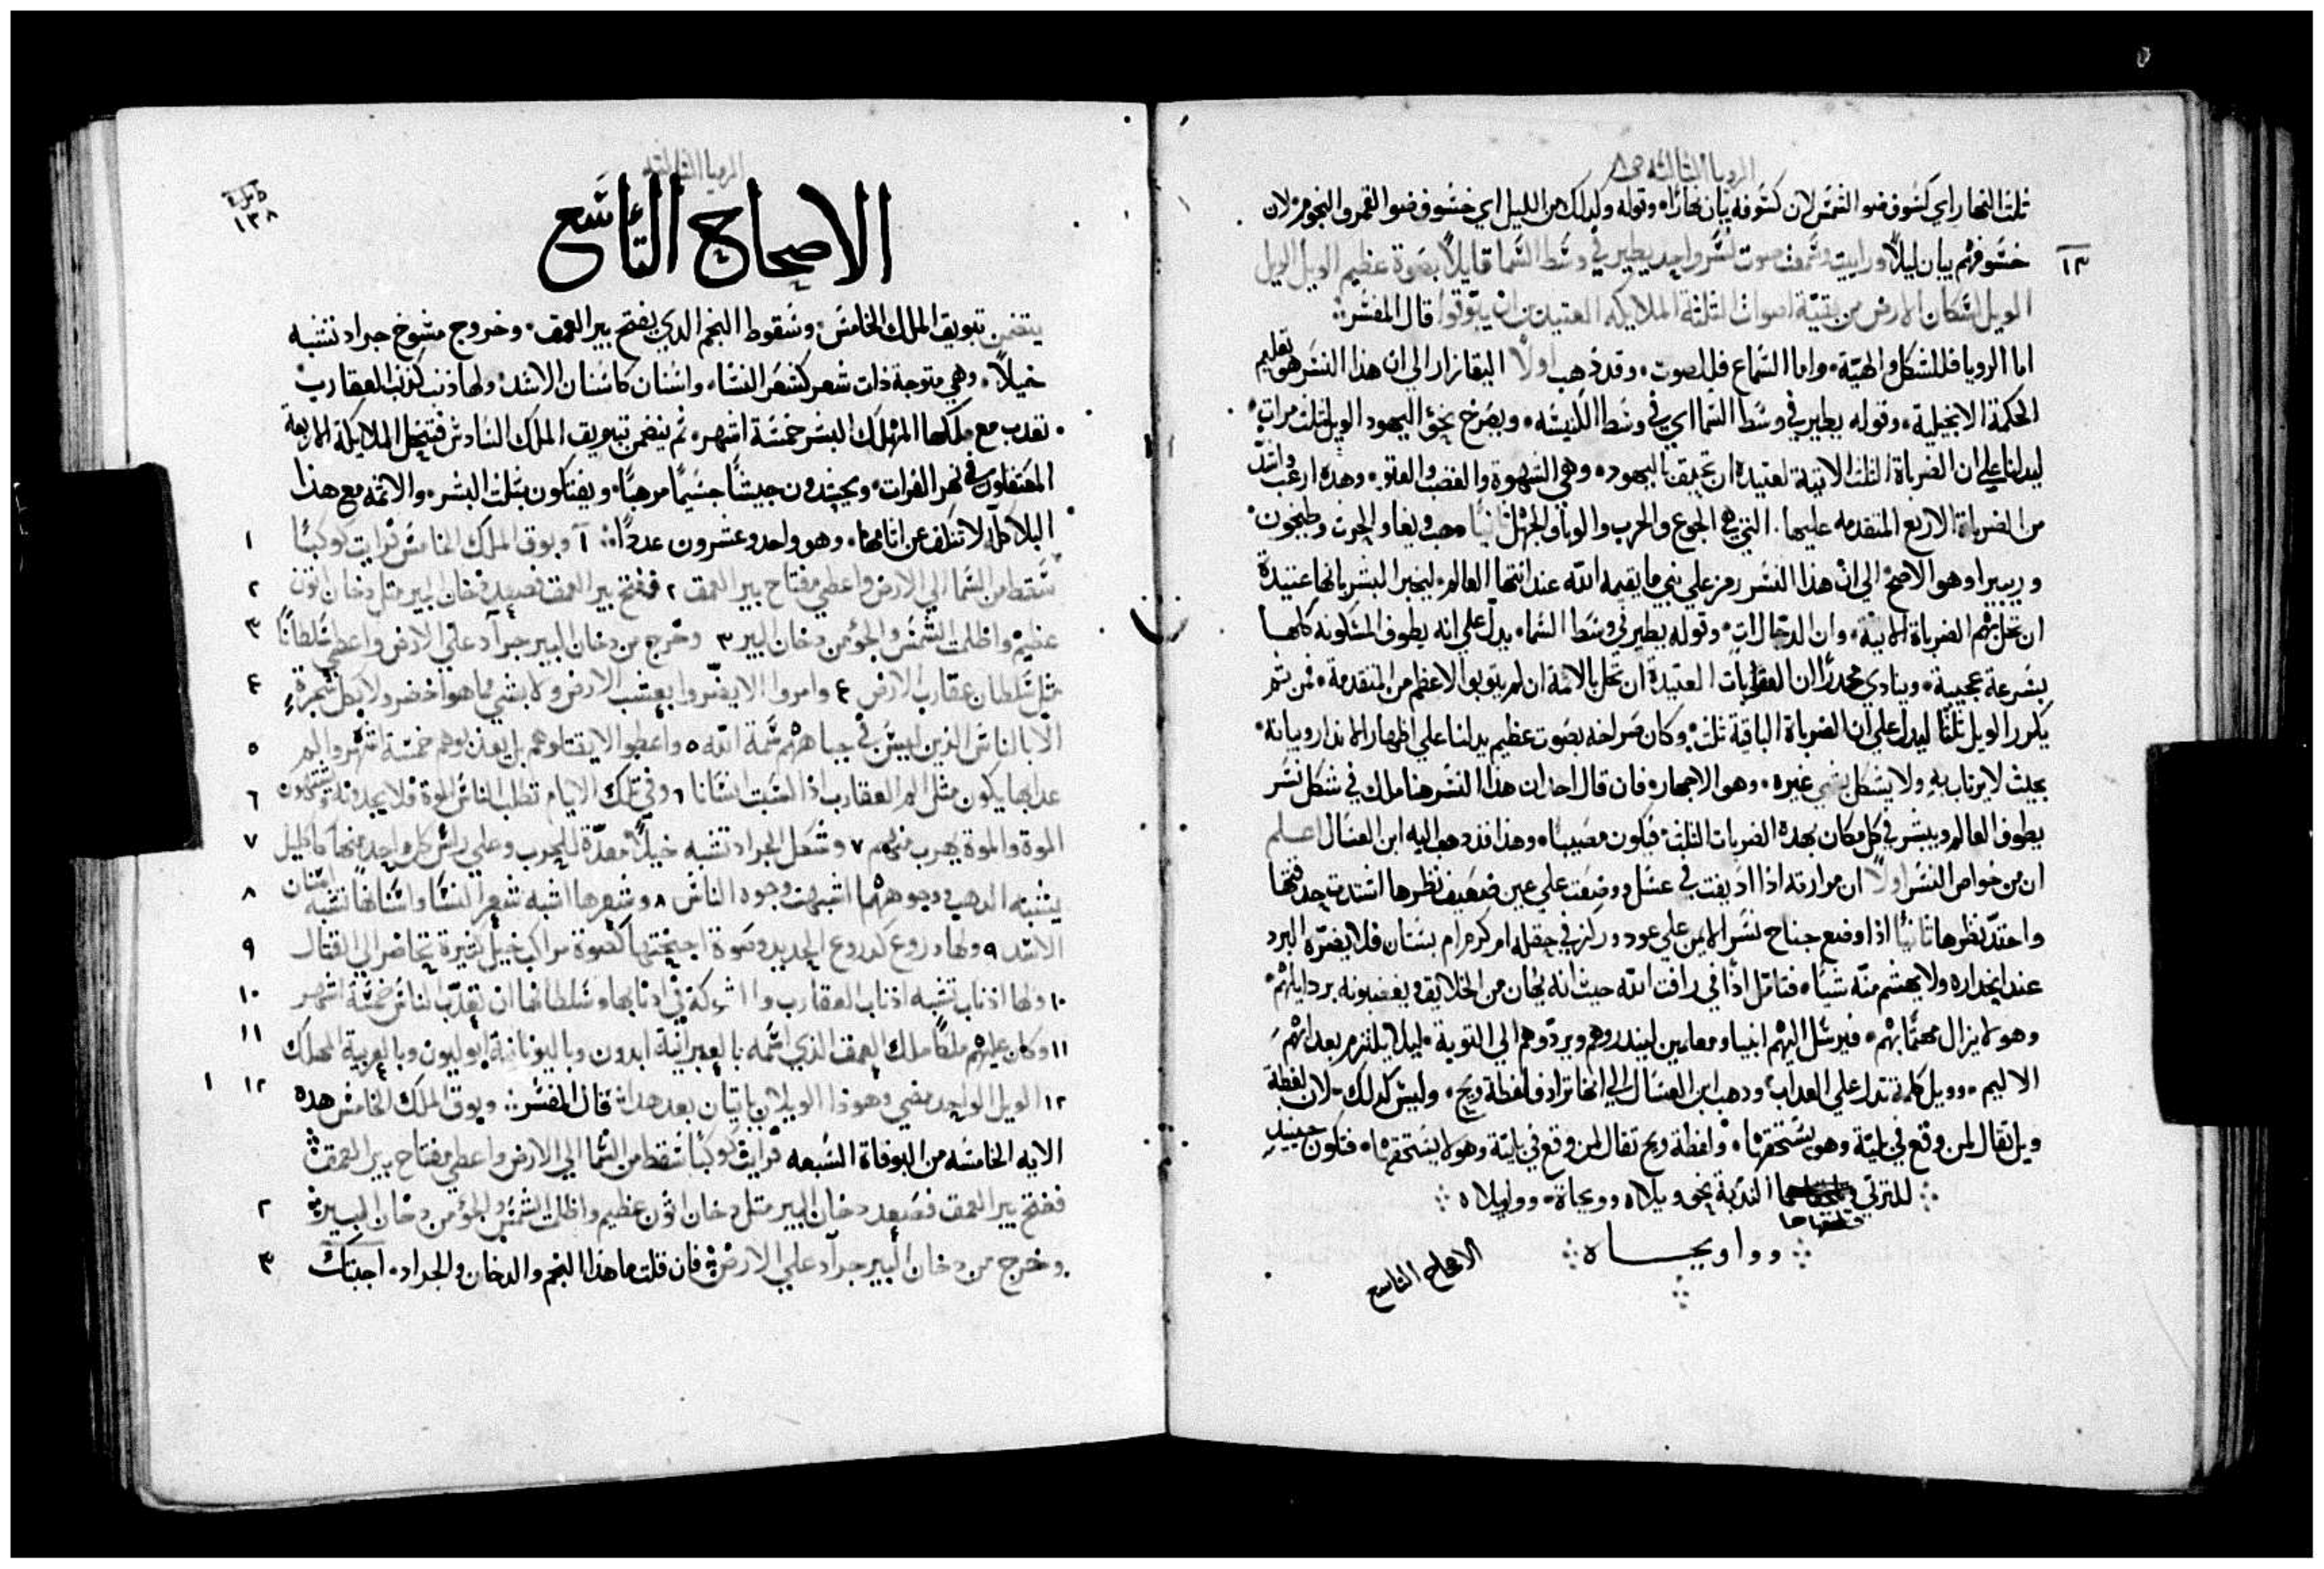 الرويا الثالثه ص٨
ثلث النهار اي كسوف ضوا الشمس لان كسوفه يبان نهارًا. وقوله وكدلك من الليل اي خسوف ضوا القمر والنجوم. لان
خسوفهم يبان ليلاً ورايت وسمعت صوت نسر واحد يطير في وسط السما قايلاً بصوة عظيم الويل الويل
١٣
الويل لسكان الارض من بقية اصوات الثلثة الملايكه العتيدين ان يبوقوا قال المفسر:
اما الرويا فللشكل والهيّة. واما السماع فللصوت. وقد ذهب اولاً اليقازار الي ان هذا النسر هو تعليم
الحكمة الانجيلية. وقوله يطير في وسط السما اي في وسط الكنيسه. ويصرخ نحو اليهود الويل ثلث مرات.
ليدلنا علي ان الضرباة الثلث الاتية لعتيدة ان تحيق باليهود. وهي الشهوة والغضب والعتو. وهده ارعب واشدّ
من الضرباة الاربع المتقدمه عليها. التي هي الجوع والحرب والوبا والجهل ثانيًا
وريبيرا وهو الاصح الي ان هذا النسر رمز علي نبي ما يقيمه الله عند انتها العالم. ليخبر البشر بانها عتيدة
ان تحل بهم الضرباة الاتية. وان الدجال ات. وقوله يطير في وسط السما. يدل علي انه يطوف المسكونه كلها
بسرعة عجيبة. وينادي محدرًا ان العقوبات العتيدة ان تحل بالائمة ان لم يتوبوا لاعظم من المتقدمة. فمن تم
يكرر الويل ثلثًا ليدل علي ان الضرباة الباقية ثلث. وكان صراخه بصوت عظيم يدلنا علي اظهار الاندار وبيانه.
بحيث لا يرتاب به ولا يشكل بشي غيره. وهو الاجهار. فان قال احد ان هذا النسر هنا ملاك في شكل نسر
يطوف العالم ويبشر في كل مكان بهده الضربات الثلث. فيكون مصيبًا. وهذا قد دهب اليه ابن العسال اعلم
ان من خواص النسر اولاً ان مرارته اذا اديفت في عسل ووضعت علي عين ضعيف نظرها اشتدت حدقتها
واحتد نظرها ثانيًا اذا وضع جناح نسر الايمن علي عود وركز في حقله ام كرم ام بستان فلا يضره البرد
عند انحداره ولا يهشم منه شيًا. فتامل اذًا في رافت الله حيث انه يُهان من الخلايق ويغضبونه بردايلهم.
وهو لا يزال مهتمًا بهم. فيرسل اليهم انبيا ومعلمين لينذروهم ويردّوهم الي التوبة. ليلا يلتزم بعدابهم
الاليم. وويل كلمة تدل علي العداب. ودهب ابن العسال الي انها ترادف لفظة ويح. وليس كدلك. لان لفظة
ويل تقال لمن وقع في بلية وهو يستحقها. ولفظة ويح تقال لمن وقع في بلية وهو لا يستحقها. فتكون حينيد
للترثي الندبة نحو ويلاه وويحاة. وواويلاه
وواويحاه
الاصحاح التاسع
الرويا الثالثه
١٣٨
الاصحاح التاسع
يتضمن تبويق الملاك الخامس. وسقوط النجم الدي يفتح بير العمق. وخروج مسوخ جراد تشبه
خيلاً. وهي متوجة ذات شعر كشعر النسا. واسنان كاسنان الاسد. ولها ذنب كذنب العقارب
تعدب مع ملكها المهلك البشر خمسة اشهر. ثم يتضمن تبويق الملاك السادس فتنحل الملايكة الاربعة
المعتقلون في نهر الفرات. ويجندون جيشًا جسيمًا مرهبًا. ويفتكون بثلث البشر. والاثمه مع هذا
البلا كله لا تنكف عن اثامها. وهو واحد وعشرون عددًا: ١ وبوق الملاك الخامس فرايت كوكبًا
١
سقط من السما الي الارض واعطي مفتاح بير العمق ٢ ففتح بير العمق فصعد دخان البير مثل دخان اتون
٢
عظيم واظلمت الشمس والجو من دخان البير ٣ وخرج من دخان البير جراد علي الارض واعطي سلطانًا
٣
مثل سلطان عقارب الارض ٤ وامروا الا يضروا بعشب الارض ولا بشي مما هو اخضر ولا بكل شجرة
٤
الا بالناس الذين ليس في جباههم سمة الله ٥ واعطوا الا يقتلوهم بل يعذبوهم خمسة اشهر والم
٥
عدابها يكون مثل الم العقارب اذا لسبت انسانا ٦ وفي تلك الايام تطلب الناس الموة فلا يجدونه ويشتهون
٦
الموة والموة يهرب منهم ٧ وشكل الجراد تشبه خيلاً معدّة للحرب وعلي راس كل واحد منها كاكليل
٧
يشبه الدهب ووجوههم اشبهت وجوه الناس ٨ وشعرها اشبه شعر النسا واسنانها تشبه اسنان
٨
الاسد ٩ ولها دروع كدروع الحديد وصوة اجنحتها كصوة مراكب خيل كثيرة تحاضر الي القتال
٩
١٠ ولها اذناب تشبه اذناب العقارب والشوكة في ادنابها وسلطانها ان تعدّب الناس خمسة اشهر
١٠
١١ وكان عليهم ملكًا ملاك العمق الذي اسمه بالعبرانية ابدون وباليونانية ابوليون وبالعربية المهلك
١١
١٢ الويل الواحد مضي وهوذا الويلان ياتيان بعد هدا: قال المفسر: وبوق الملاك الخامس هده
١٢ ١
الايه الخامسه من البوقاة السبعه فرايت كوكبًا سقط من السما الي الارض واعطي مفتاح بير العمق
ففتح بير العمق فصعد دخان البير مثل دخان اتون عظيم واظلمت الشمس والجو من دخان البير
٢
وخرج من دخان البير جراد علي الارض فان قلت ما هذا النجم والدخان والجراد. اجبتك
٣